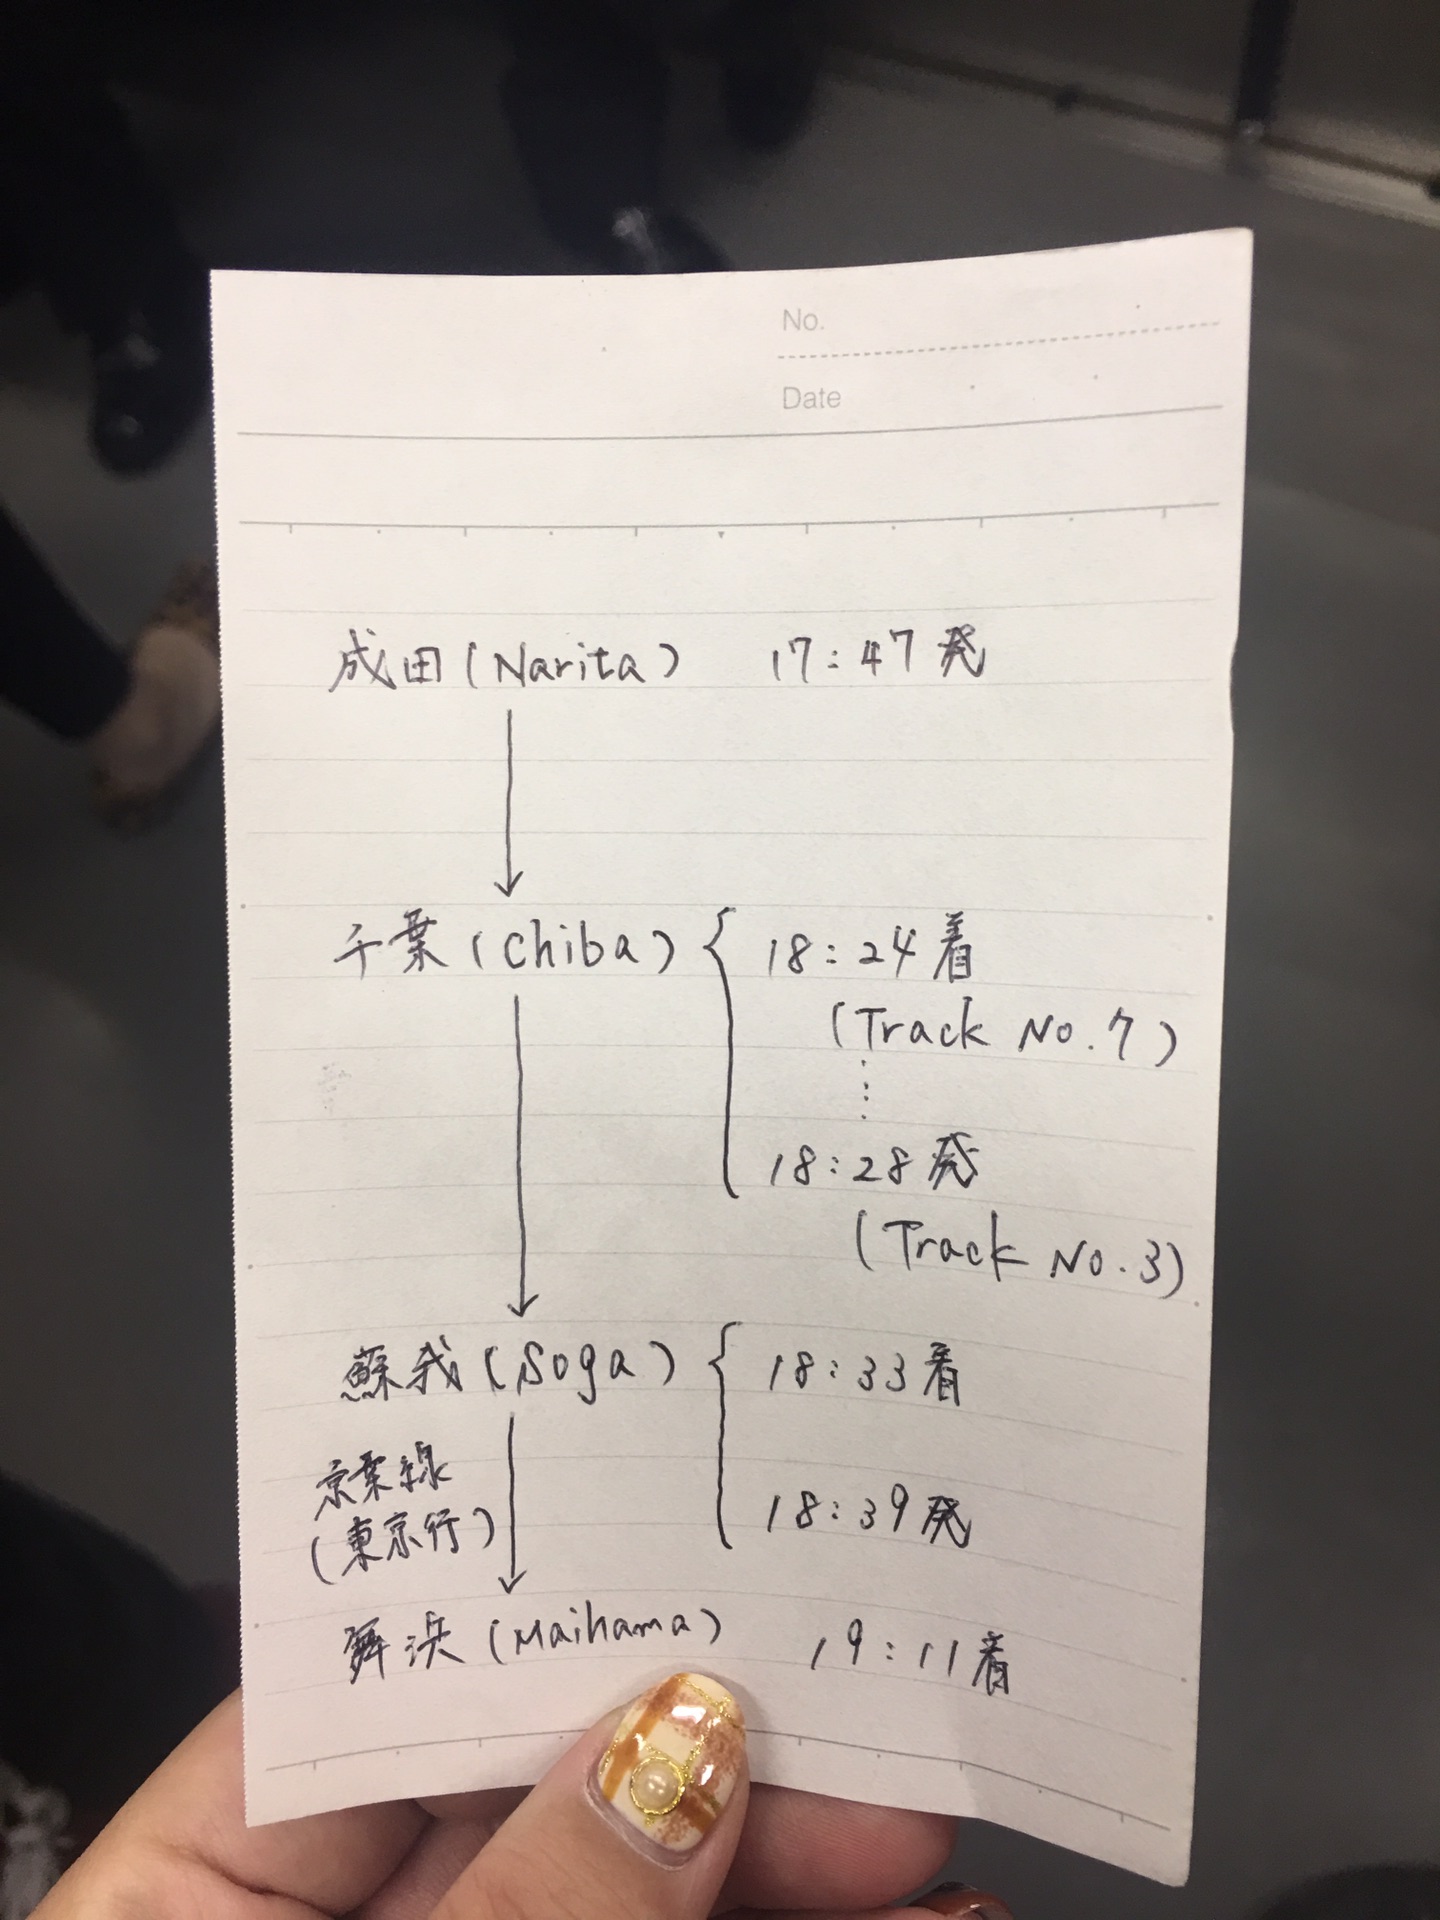 No.
Date
成田(Narita) 17:47発
千葉(Chiba) 18:24着
(Track No.7)
18:28発
(Track No.3)
蘇我(Soga) 18:33着
京葉線
(東京行)
18:39発
舞浜(Maihama) 19:11着